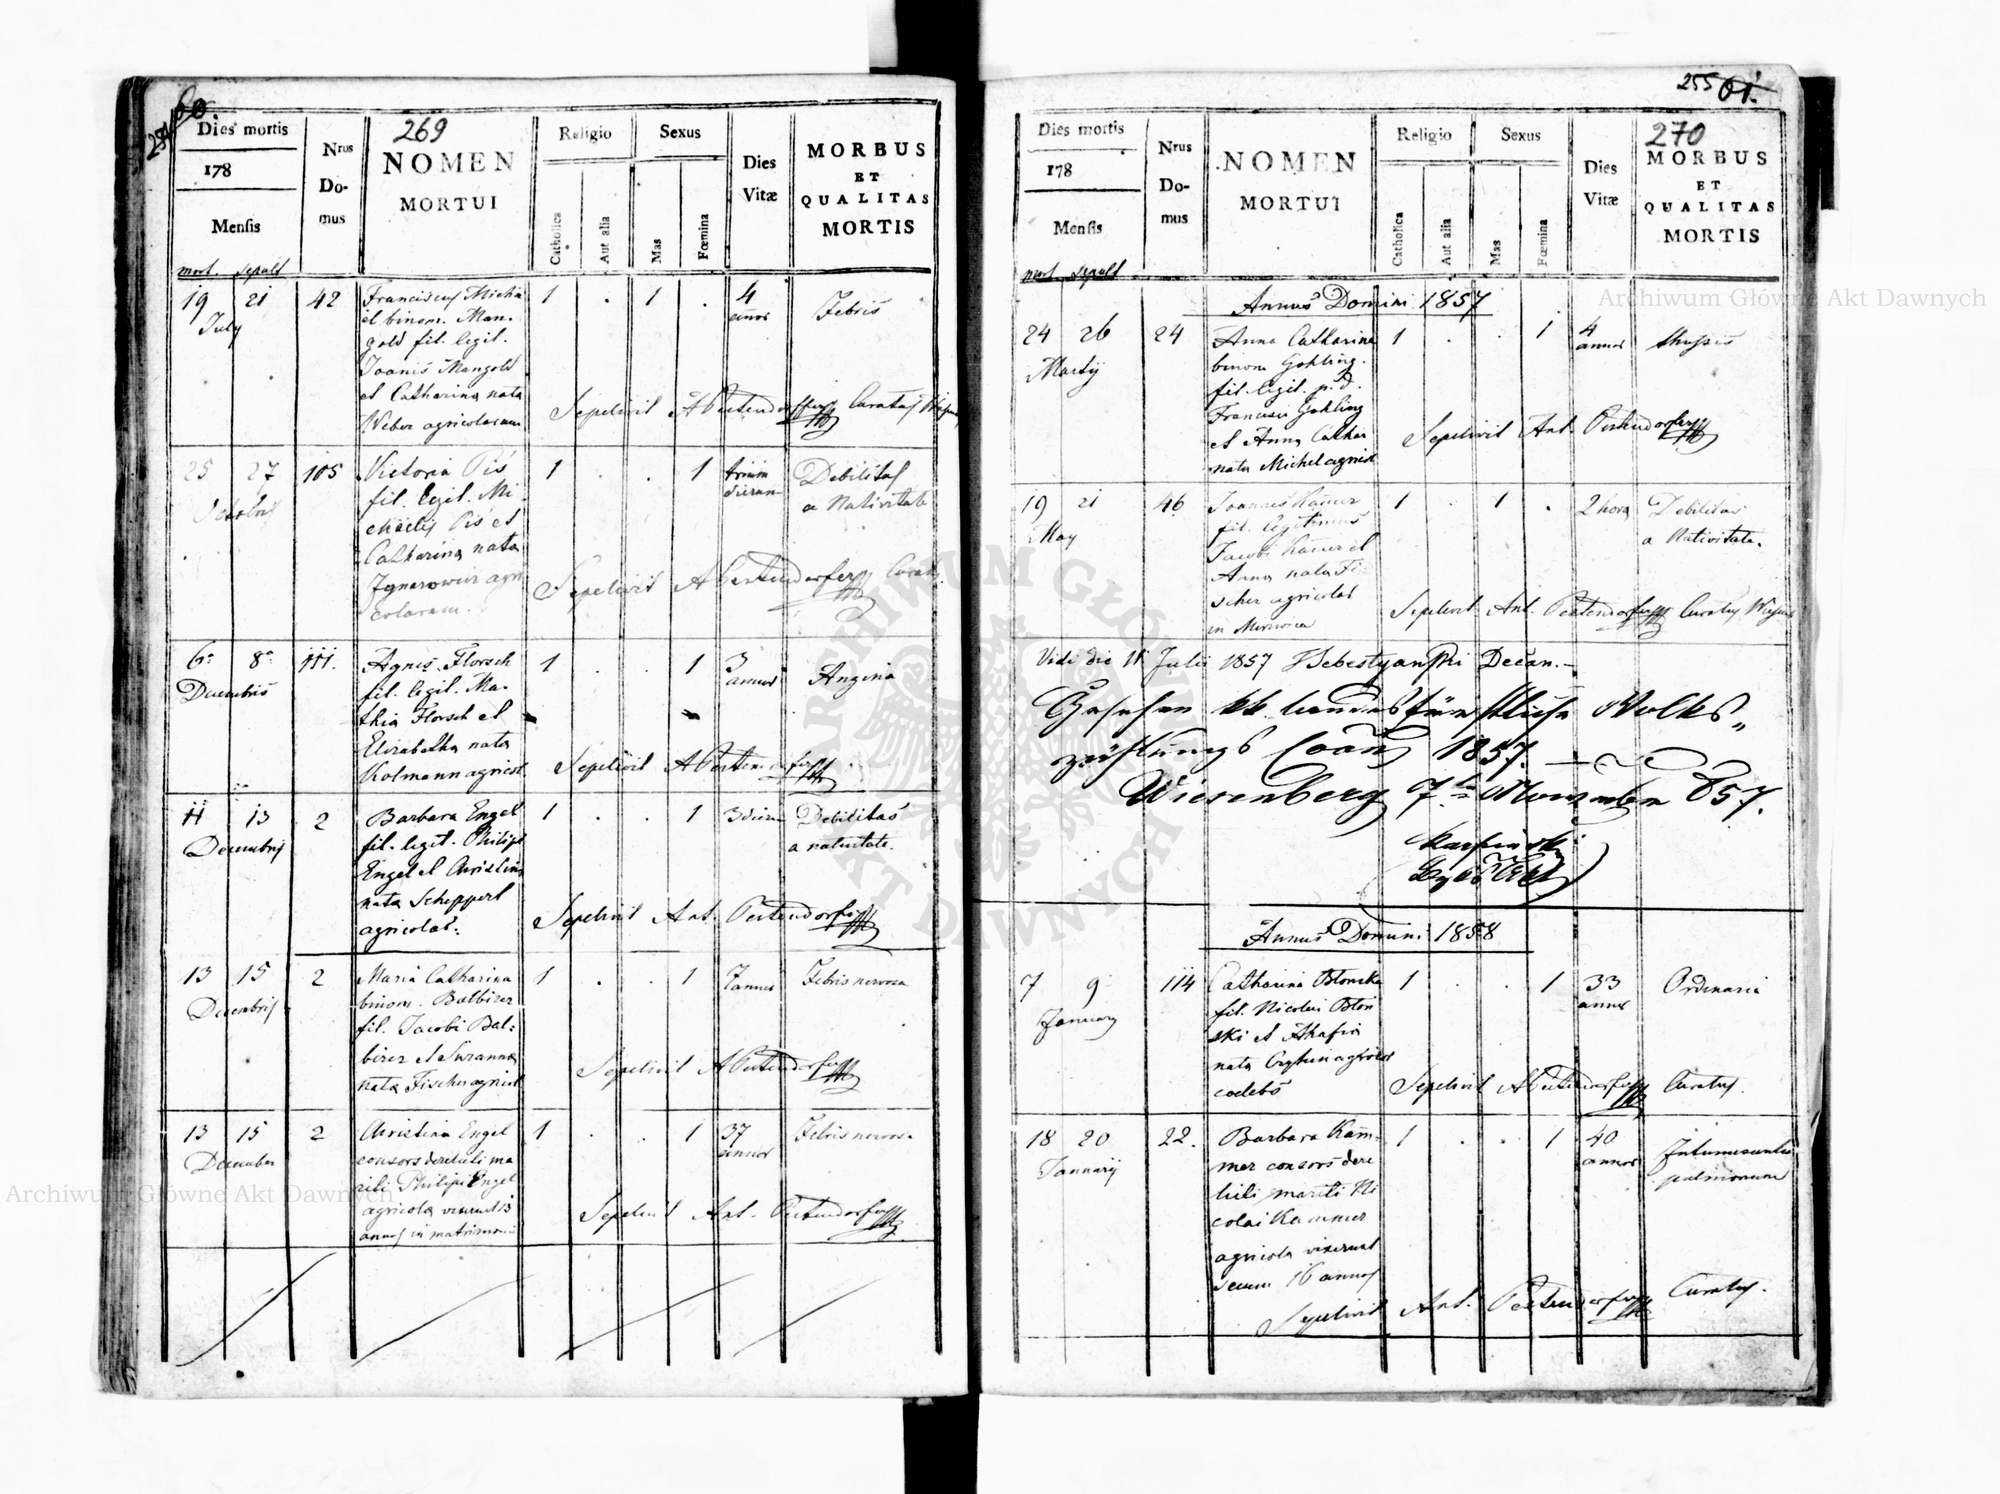 60.
269
Dies mortis
178
Mensis
mort. sepult
Nrus
Do-
mus
NOMEN
MORTUI
Religio
Catholica
Aut alia
Sexus
Mas
Fœmina
Dies
Vitæ
MORBUS
ET
QUALITAS
MORTIS
19 21 42
July
Franciscus Micha
el binom. Man-
gold fil. legit.
Joanis Mangold
et Catharina nata
Weber agricolarum
1 . 1 .
4
annor
Febris
Sepelivit A Pertendorfer Curatus
25 27 105
Octobris
Victoria Pis
fil. legit. Mi-
chaelis Pis et
Catharina nata
agri
colarum.
1 . . 1
trium
dierum
Debilitas
a Nativitate
Sepelivit A Pertendorfer Curat.
6a 8a 111.
Decembris
Agnes Florsch
fil. legit. Ma-
thia Florsch et
Elisabetha nata
Kolmann agricol
1 . . 1
3
annor
Angina
Sepelivit A Pertendorfer
11 13 2
Decembris
Barbara Engel
fil. legit. Philipi
Engel et Christina
nata Scheppert
agricolar.
1 . . 1
3 dierum
Debilitas
a nativitate.
Sepelivit Ant. Pertendorfer
13 15 2
Decembris
Maria Catharina
binom. Balbirer
fil. Jacobi Bal-
birer et Suzanna
nata Fischer agricol
1 . . 1
7
annor
Febris nervosa
Sepelivit A Pertendorfer
13 15 2
December
Christina Engel
consors derelicti ma
riti Philipi Engel
agricola vixerunt 13
annos in matrimonio
1 . . 1
37
annor
Febris nervosa
Sepelivit Ant. Pertendorfer
255 61.
270
Dies mortis
178
Mensis
mort. sepult
Nrus
Do-
mus
NOMEN
MORTUI
Religio
Catholica
Aut alia
Sexus
Mas
Fœmina
Dies
Vitæ
MORBUS
ET
QUALITAS
MORTIS
Annus Domini 1857
24 26 24
Martij
Anna Catharina
binom Gohling.
fil. legit. p. d.
Francisci Gohling
et Anna Cathar
nata Michel agricol
1 . . 1
4
annor
Sepelivit Ant. Pertendorfer
19 21 46
May
Joannes Kamer
fil. legitimus
Jacobi Kamer et
Anna nata Fi-
scher agricolar
in Mierzwica
1 . 1 .
2 hora
Debilitas
a Nativitate.
Sepelivit Ant. Pertendorfer Curatus
Vidi die 11 Julii 1857 Decan.
Gesehen kk landesfürstliche Volks„
zählungs 1857.
Wiesenberg 7 November 857.
Karpinski
Annus Domini 1858
7 9 114
January
Catharina Blonska
fil. Nicolai Blon
ski et Ahafia
nata
coelebs
1 . . 1
33
annor
Ordinaria
Sepelivit A Pertendorfer Curatus.
18 20 22.
Januarij
Barbara Kam-
mer consors dere
licti mariti Ni
colai Kammer
agricola vixerunt
secum 16 annos
1 . . 1
40
annor
Intumescentia
pulmonum
Sepelivit Ant. Pertendorfer Curatus.
Archiwum Główne Akt Dawnych
Archiwum Główne Akt Dawnych
ARCHIWUM GŁÓWNE
AKT DAWNYCH